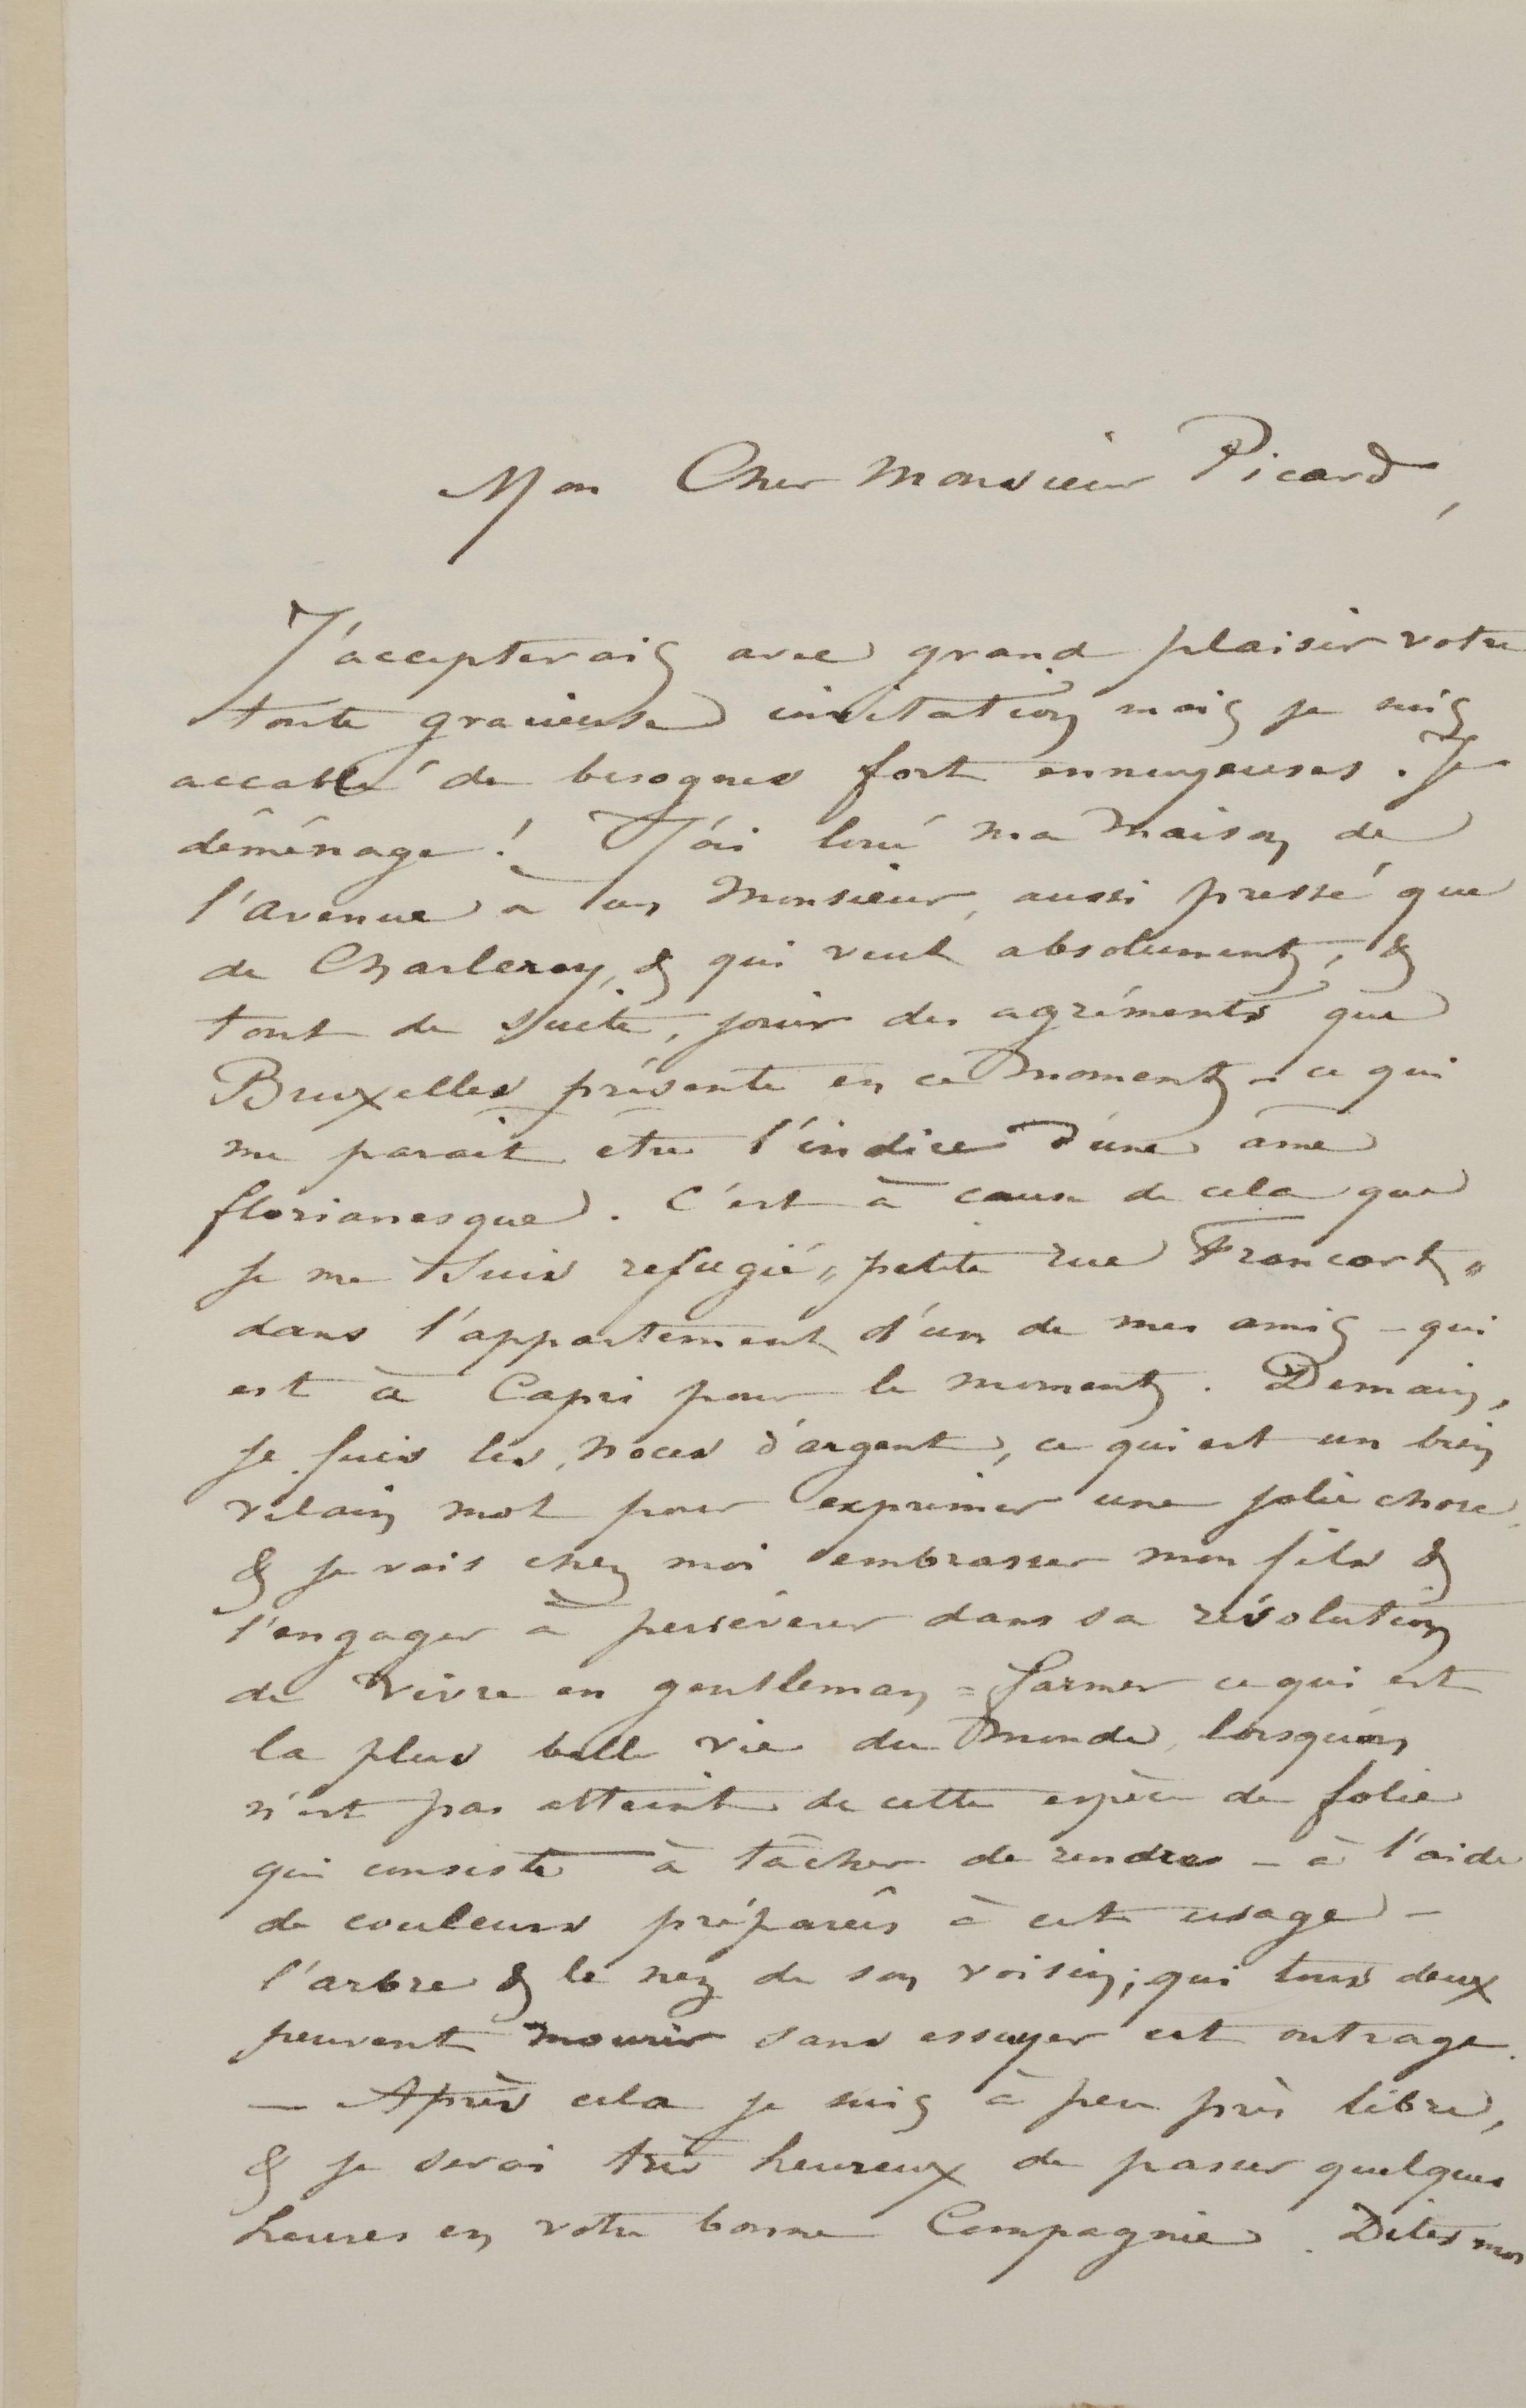 Mon Cher Monsieur Picard,
J'accepterais avec grand plaisir votre
toute gracieuse invitation mais je suis
accablé de besognes fort ennuyeuses. Je
déménage ! J'ai loué ma maison de
l'avenue à un Monsieur, aussi pressé que
de Charleroy, & qui veut absolument, &
tout de suite, jouir des agréments que
Bruxelles présente en ce moment – ce qui
me parait être l'indice d'une âme
florianesque. C'est à cause de cela que
je me suis refugié „petite rue Francart„
dans l'appartement d'un de mes amis – qui
est à Capri pour le moment. Demain,
je fuis les noces d'argent, ce qui est un bien
vilain mot pour exprimer une jolie chose,
& je vais chez moi embrasser mon fils &
l'engager à persévérer dans sa résolution
de vivre en gentleman = farmer ce qui est
la plus belle vie du monde, lorsqu'on
n'est pas atteint de cette espèce de folie
qui consiste à tâcher de rendre – à l'aide
de couleurs préparées à cet usage –
l'arbre & le nez de son voisin; qui tous deux
peuvent mourir sans essuyer cet outrage.
— Après cela je suis à peu près libre,
& je serai très heureux de passer quelques
heures en votre bonne Compagnie. Dites moi